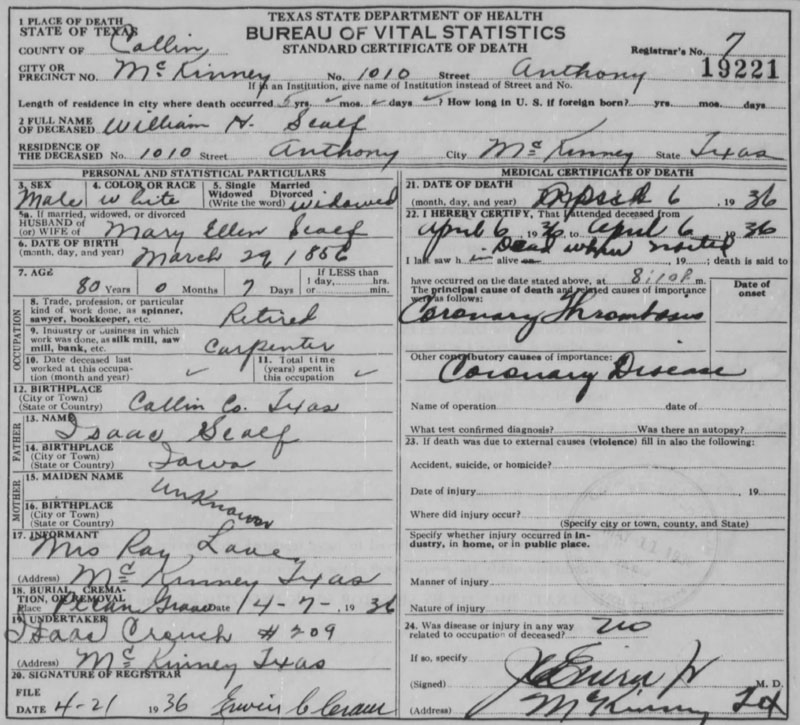 TEXAS STATE DEPARTMENT OF HEALTH
BUREAU OF VITAL STATISTICS
STANDARD CERTIFICATE OF DEATH
1 PLACE OF DEATH
STATE OF TEXAS
COUNTY OF Collin
Registrar's No. 7
CITY OR PRECINCT NO. McKinney No. 1010 Street Anthony 19221
If in an Institution, give name of Institution instead of Street and No.
Length of residence in city where death occurred 5 yrs. ✓ mos. ✓ days ✓? How long in U. S. if foreign born? yrs. mos. days
2 FULL NAME OF DECEASED William H. Scalf
RESIDENCE OF THE DECEASED No. 1010 Street Anthony City McKinney State Texas
PERSONAL AND STATISTICAL PARTICULARS
3. SEX Male
4. COLOR OR RACE White
5. Single Married Widowed Divorced (Write the word) Widowed
5a. If married, widowed, or divorced
HUSBAND OF (or) WIFE OF Mary Ellen Scalf
6. DATE OF BIRTH (month, day, and year) March 29 1856
7. AGE 80 Years 0 Months 7 Days If LESS than 1 day, hrs. or min.
OCCUPATION
8. Trade, profession, or particular kind of work done, as spinner, sawyer, bookkeeper, etc. Retired
9. Industry or business in which work was done, as silk mill, saw mill, bank, etc. Carpenter
10. Date deceased last worked at this occupation (month and year) ✓
11. Total time (years) spent in this occupation ✓
12. BIRTHPLACE (City or Town) (State or Country) Collin Co. Texas
FATHER
13. NAME Isaac Scalf
14. BIRTHPLACE (City or Town) (State or Country) Iowa
MOTHER
15. MAIDEN NAME Unknown
16. BIRTHPLACE (City or Town) (State or Country)
17. INFORMANT Mrs Ray Love
(Address) McKinney Texas
18. BURIAL, CREMATION, OR REMOVAL
Place Pecan Grove Date 4-7- 1936
19. UNDERTAKER Isaac Crouch #209
(Address) McKinney Texas
20. SIGNATURE OF REGISTRAR
FILE DATE 4-21 1936 Erwin C
MEDICAL CERTIFICATE OF DEATH
21. DATE OF DEATH (month, day, and year) April 6 1936
22. I HEREBY CERTIFY, That I attended deceased from
April 6 1936 to April 6 1936
Dead when
I last saw h im alive on 19 ; death is said to
have occurred on the date stated above, at 8:10 P m.
The principal cause of death and related causes of importance were as follows: Date of onset
Coronary Thrombosis
Other contributory causes of importance:
Coronary Disease
Name of operation date of
What test confirmed diagnosis? Was there an autopsy?
23. If death was due to external causes (violence) fill in also the following:
Accident, suicide, or homicide?
Date of injury 19
Where did injury occur?
(Specify city or town, county, and State)
Specify whether injury occurred in industry, in home, or in public place.
Manner of injury
Nature of injury
24. Was disease or injury in any way related to occupation of deceased? no
If so, specify
(Signed) M. D.
(Address) McKinney Tex